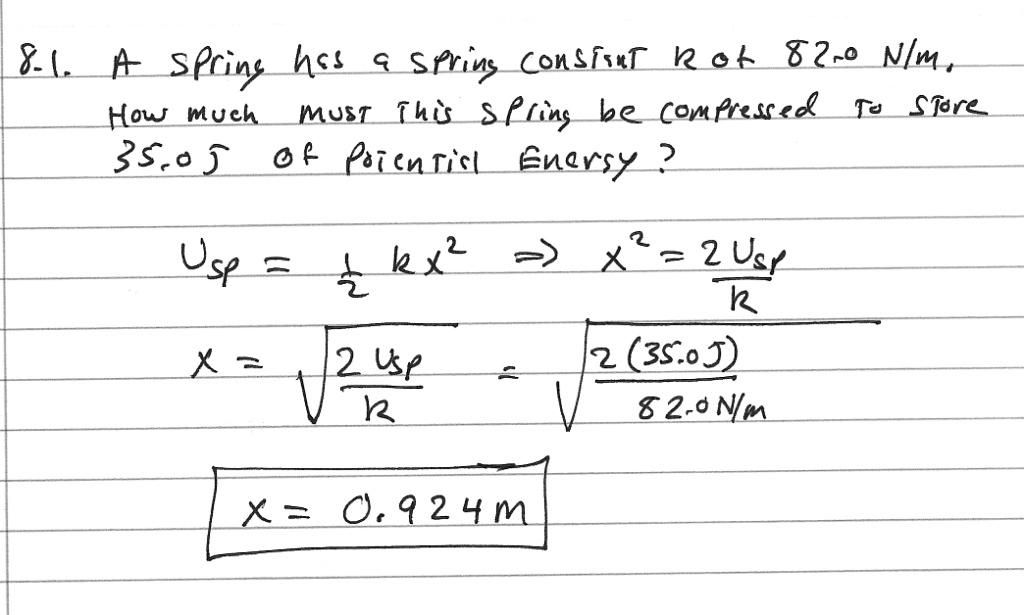 8.1. A spring has a spring constant k of 82.0 N/m.
How much must this spring be compressed to store
35.0 J of Potential Energy?
Usp = 1/2 kx² ⇒ x² = 2 Usp / k
x = √(2 Usp / k) = √(2 (35.0 J) / 82.0 N/m)
x = 0.924 m